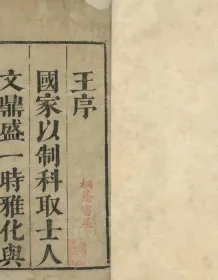 王序
國家以制科取士人
文鼎盛一時雅化與